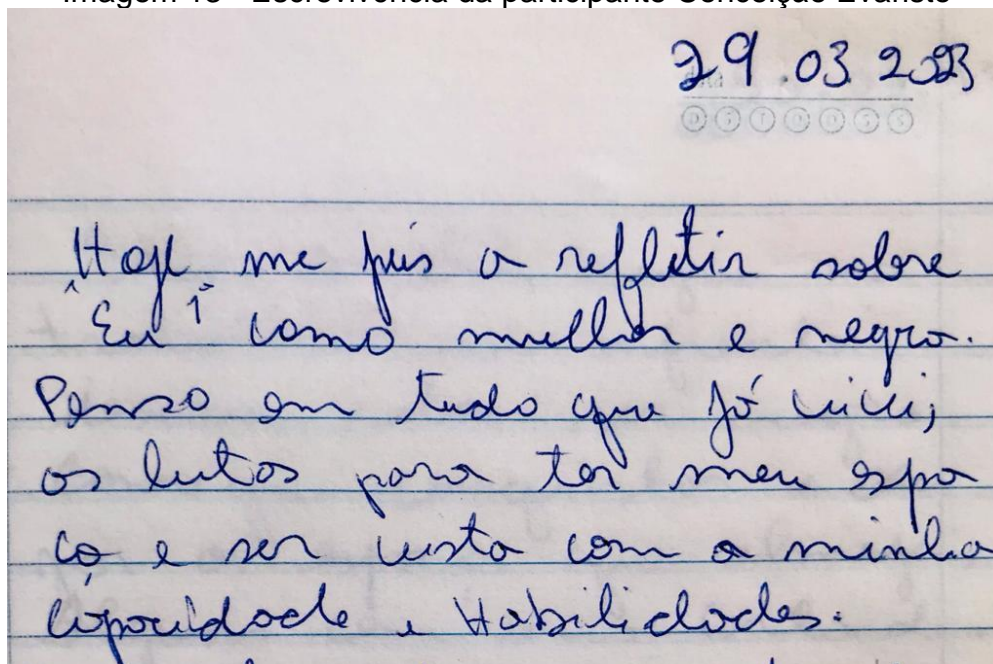 Imagem 18 - Escrevivência da participante Conceição Evaristo
29.03.2023
Hoje me pus a refletir sobre
"Eu" como mulher e negra.
Penso em tudo que já vivi;
as lutas para ter meu espa
ço e ser vista com a minha
capacidade e Habilidades.